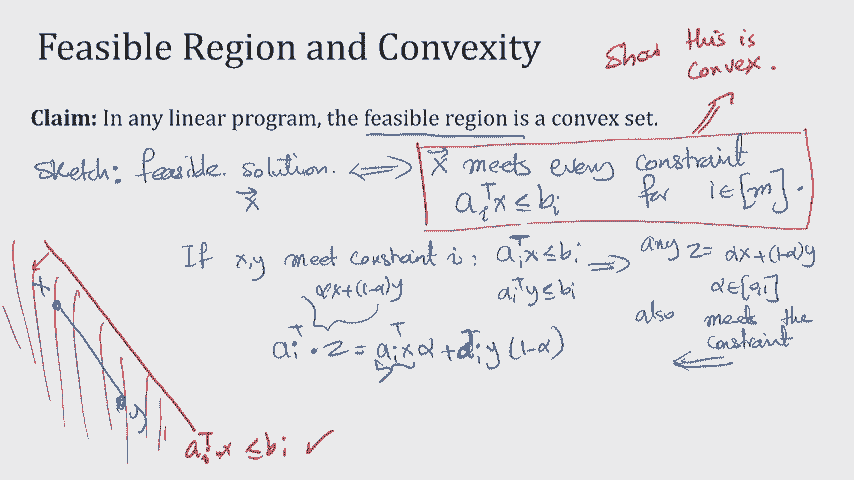 Feasible Region and Convexity
Show this is
convex.
Claim: In any linear program, the feasible region is a convex set.
Sketch: feasible solution. ⟺ x⃗ meets every constraint
x⃗
aᵢᵀx ≤ bᵢ for i∈[m].
If x,y meet constraint i: aᵢᵀx ≤ bᵢ ⟹ any z = αx+(1-α)y
αx+(1-α)y
aᵢᵀy ≤ bᵢ
α∈[0,1]
also meets the
constraint
aᵢᵀ·z = aᵢᵀxα + aᵢᵀy(1-α)
x
y
aᵢᵀx ≤ bᵢ ✓